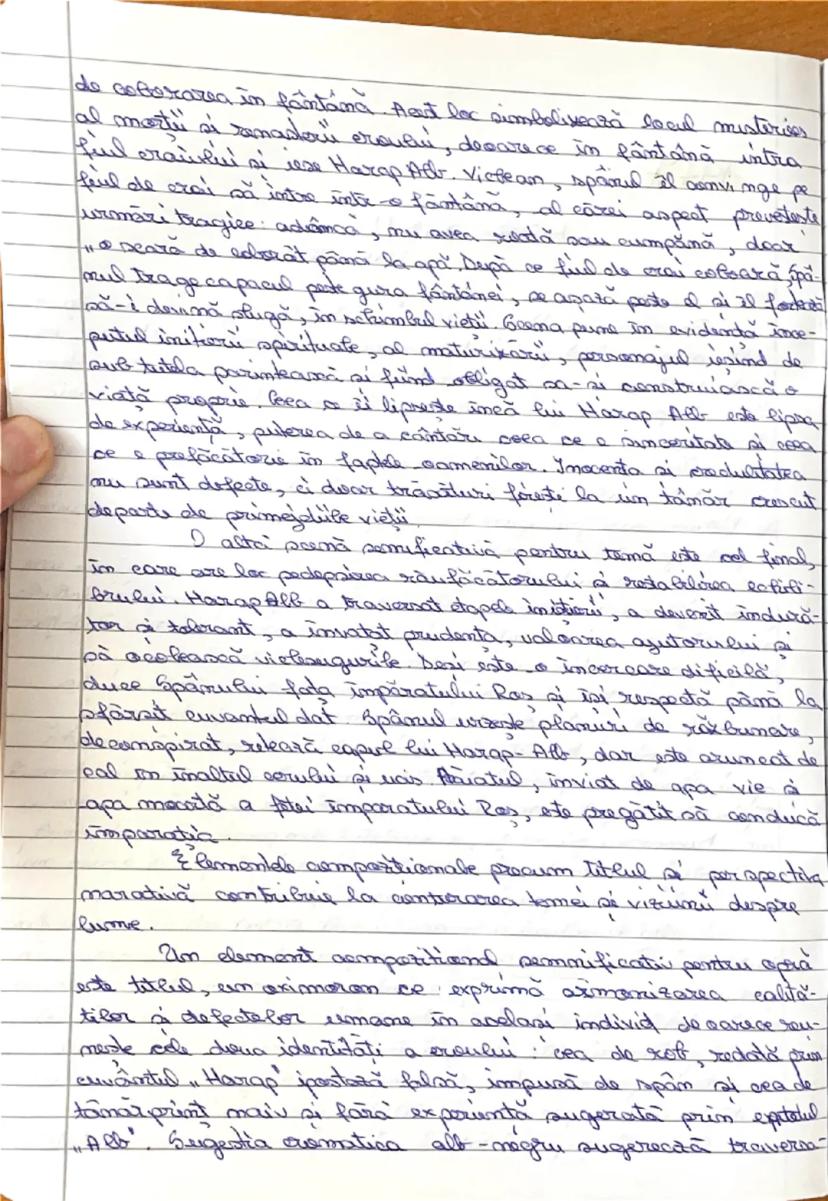 de coborarea în fântână. Acest loc simbolizează locul misterios
al morții si renasterii eroului, deoarece în fântână intra
fiul craiului si iese Harap Alb. Viclean, spânul îl convinge pe
fiul de crai să intre într-o fântână, al cărei aspect prevestește
urmări tragice: adâncă, nu avea roată sau cumpănă, doar
„o scară de coborât până la apă. După ce fiul de crai coboară, spâ-
nul trage capacul peste gura fântânei, se așază peste el si îl forțează
să-i devină slugă, în schimbul vieții. Scena pune în evidență înce-
putul inițierii spirituale, al maturizării, personajul ieșind de
sub tutela parintească si fiind obligat sa-si construiască o
viață proprie. Ceea ce îi lipsește încă lui Harap Alb este lipsa
de experiență, puterea de a cântări ceea ce e sinceritate si ceea
ce e prefăcătorie în faptele oamenilor. Inocenta si credulitatea
nu sunt defecte, ci doar trăsături firești la un tânăr crescut
departe de primejdiile vieții.
O altă scenă semnificativă pentru temă este cel final,
în care are loc pedepsirea răufăcătorului si restabilirea echili-
brului. Harap Alb a traversat etapele inițierii, a devenit îndură-
tor si tolerant, a învatat prudența, valoarea ajutorului si
să ocolească viclesugurile. Desi este o încercare dificilă,
duce Spânului fata împăratului Roș si își respectă până la
sfârsit cuvantul dat. Spânul urzește planuri de răzbunare,
deconspirat, retează capul lui Harap-Alb, dar este aruncat de
cal in înaltul cerului si ucis. Băiatul, înviat de apa vie si
apa moartă a fetei împaratului Roș, este pregătit să conducă
împaratia.
Elementele compoziționale precum titlul si perspectiva
narativă contribuie la conturarea temei si viziunii despre
lume.
Un element compozitional semnificativ pentru operă
este titlul, un oximoron ce exprimă armonizarea calită-
tilor si defectelor umane în acelasi individ deoarece reu-
nește cele doua identități a eroului: cea de rob, redată prin
cuvântul „Harap" ipostază falsă, impusă de spân si cea de
tânăr print naiv si fără experiență sugerată prin epitetul
„Alb". Sugestia cromatica alb-negru sugerează traversa-